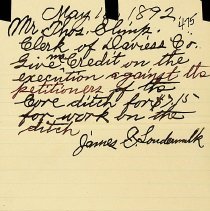 May 1 1892
Mr. Thos. Clink.
Clerk of Daviess Co.
Give me Credit on the
execution against the
petitioners of the
Core ditch for $7/15
for work on the
ditch
James S Loudermilk